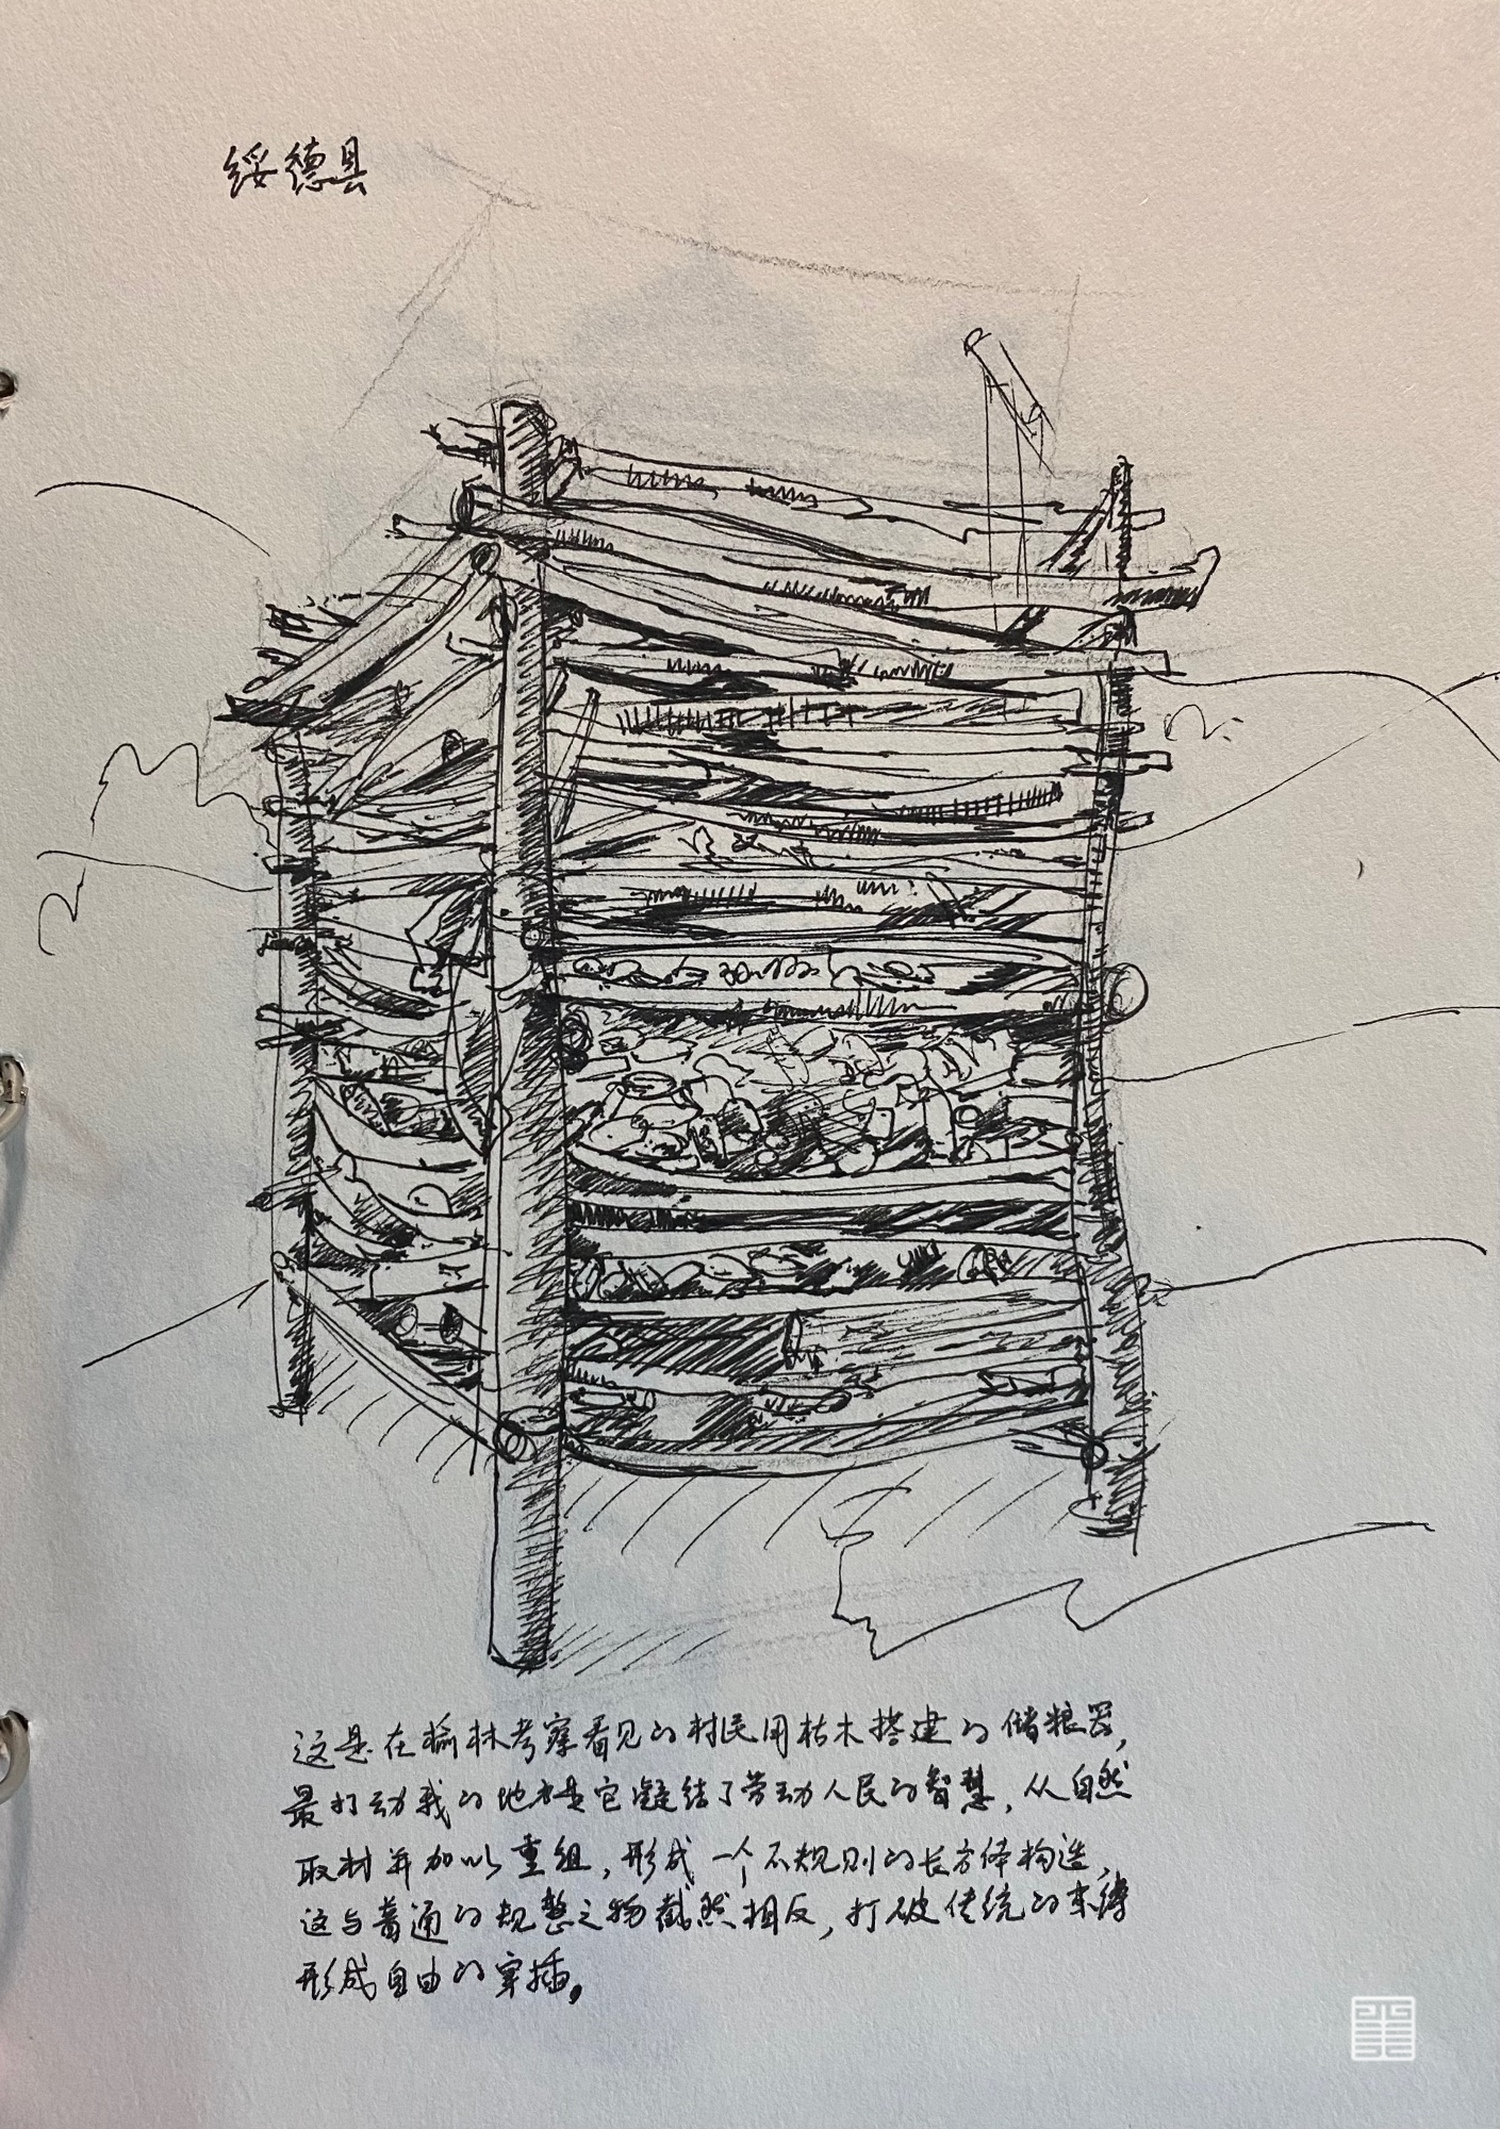 绥德县
这是在榆林考察看见的村民用枯木搭建的储粮器,
最打动我的地方是它凝结了劳动人民的智慧,从自然
取材并加以重组,形成一个不规则的长方体构造,
这与普通的规整之物截然相反,打破传统的束缚
形成自由的穿插,